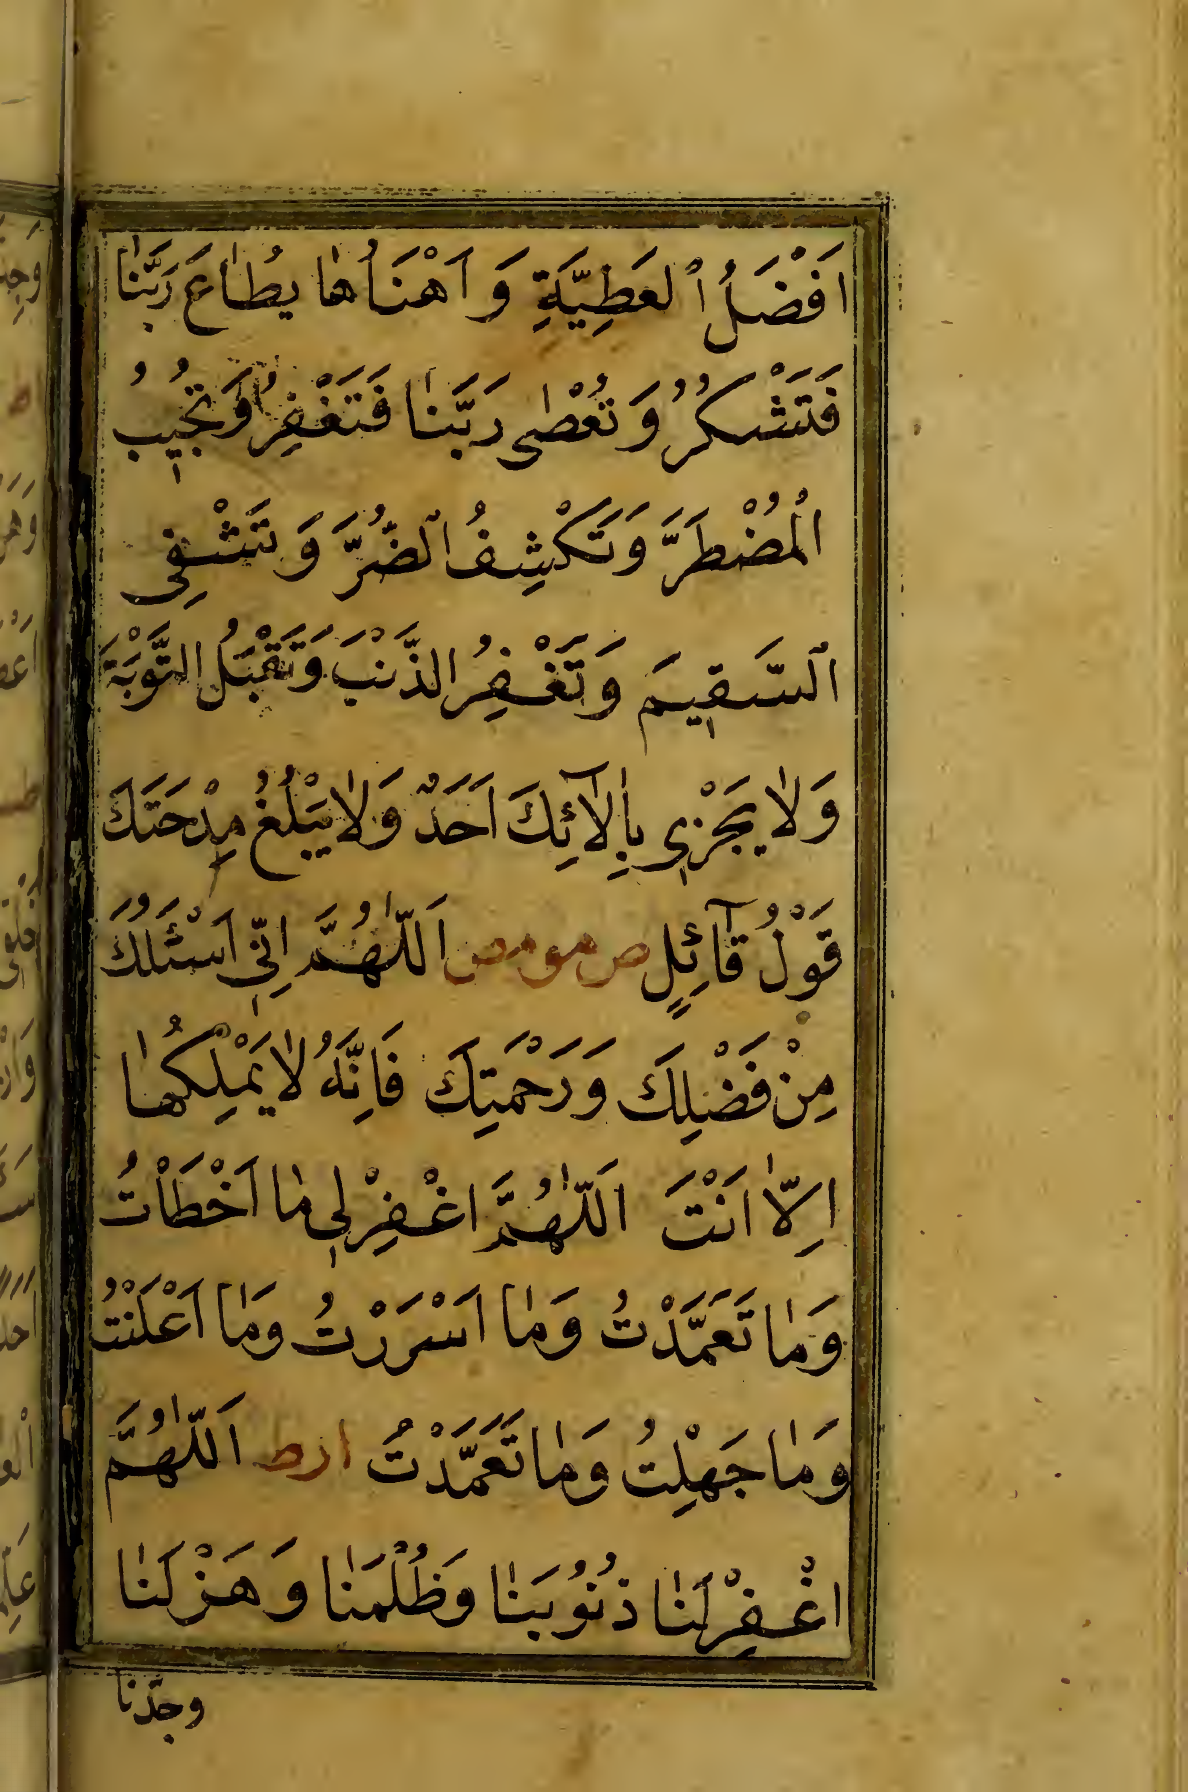 اَفْضَلُ الْعَطِيَّةِ وَ اَهْنَاُهٰا يُطٰاعُ رَبَّنٰا
فَتَشْكُرُ وَ تُعْصٰى رَبَّنٰا فَتَغْفِرُ وَ تُجِيبُ
الْمُضْطَرَّ وَ تَكْشِفُ الضُّرَّ وَ تَشْفِى
السَّقِيمَ وَ تَغْفِرُ الذَّنْبَ وَ تَقْبَلُ التَّوْبَةَ
وَلٰا يَجْزِى بِاٰلٰآئِكَ اَحَدٌ وَلٰا يَبْلُغُ مِدْحَتَكَ
قَوْلُ قٰآئِلٍ ص مو مص اَللّٰهُمَّ اِنِّى اَسْئَلُكَ
مِنْ فَضْلِكَ وَ رَحْمَتِكَ فَاِنَّهُ لٰا يَمْلِكُهٰا
اِلّٰا اَنْتَ اَللّٰهُمَّ اغْفِرْ لِى مٰا اَخْطَاْتُ
وَ مٰا تَعَمَّدْتُ وَ مٰا اَسْرَرْتُ وَ مٰا اَعْلَنْتُ
وَ مٰا جَهِلْتُ وَ مٰا تَعَمَّدْتُ ا ر ط اَللّٰهُمَّ
اغْفِرْ لَنٰا ذُنُوبَنٰا وَ ظُلْمَنٰا وَ هَزْلَنٰا
وجدّنا